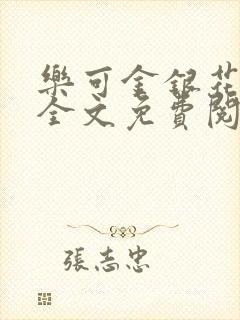 樂可金銀花
全文免費閱
張志忠